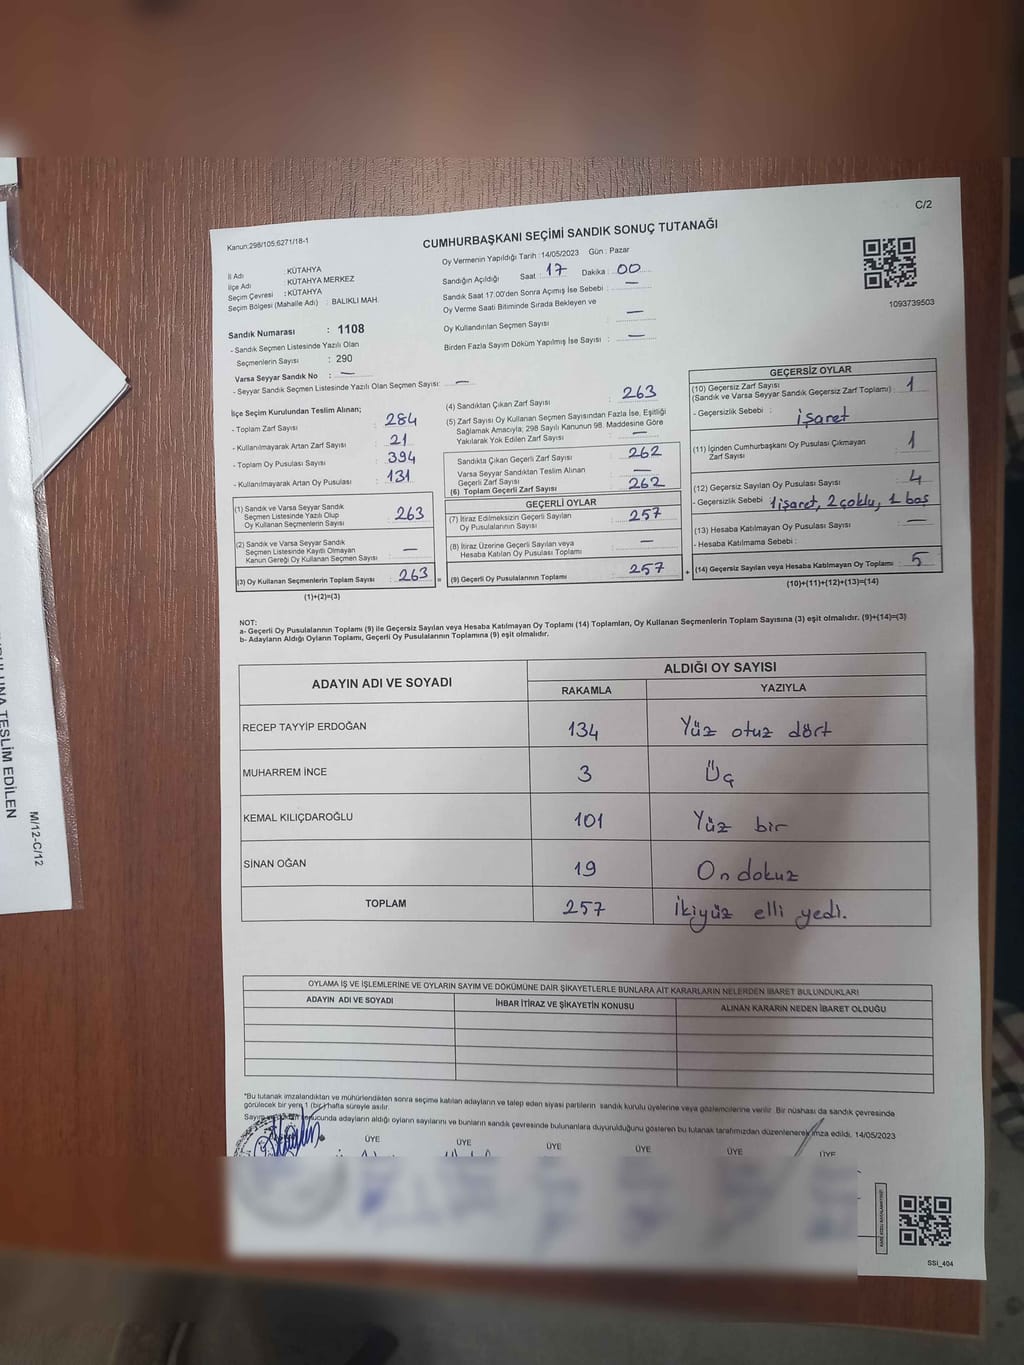 C/2
Kanun:298/105;6271/18-1
CUMHURBAŞKANI SEÇİMİ SANDIK SONUÇ TUTANAĞI
1093739503
İl Adı : KÜTAHYA
İlçe Adı : KÜTAHYA MERKEZ
Seçim Çevresi : KÜTAHYA
Seçim Bölgesi (Mahalle Adı) : BALIKLI MAH.
Sandık Numarası : 1108
- Sandık Seçmen Listesinde Yazılı Olan
Seçmenlerin Sayısı : 290
Varsa Seyyar Sandık No : —
- Seyyar Sandık Seçmen Listesinde Yazılı Olan Seçmen Sayısı: —
Oy Vermenin Yapıldığı Tarih :14/05/2023 Gün : Pazar
Sandığın Açıldığı Saat : 17 Dakika : 00
Sandık Saat 17:00'den Sonra Açımış İse Sebebi : —
Oy Verme Saati Bitiminde Sırada Bekleyen ve
Oy Kullandırılan Seçmen Sayısı : —
Birden Fazla Sayım Döküm Yapılmış İse Sayısı : —
İlçe Seçim Kurulundan Teslim Alınan;
- Toplam Zarf Sayısı : 284
- Kullanılmayarak Artan Zarf Sayısı : 21
- Toplam Oy Pusulası Sayısı : 394
- Kullanılmayarak Artan Oy Pusulası : 131
(1) Sandık ve Varsa Seyyar Sandık
Seçmen Listesinde Yazılı Olup
Oy Kullanan Seçmenlerin Sayısı : 263
(2) Sandık ve Varsa Seyyar Sandık
Seçmen Listesinde Kayıtlı Olmayan
Kanun Gereği Oy Kullanan Seçmen Sayısı : —
(3) Oy Kullanan Seçmenlerin Toplam Sayısı : 263 =
(1)+(2)=(3)
(4) Sandıktan Çıkan Zarf Sayısı : 263
(5) Zarf Sayısı Oy Kullanan Seçmen Sayısından Fazla İse, Eşitliği
Sağlamak Amacıyla; 298 Sayılı Kanunun 98. Maddesine Göre
Yakılarak Yok Edilen Zarf Sayısı : —
Sandıkta Çıkan Geçerli Zarf Sayısı : 262
Varsa Seyyar Sandıktan Teslim Alınan
Geçerli Zarf Sayısı : —
(6) Toplam Geçerli Zarf Sayısı : 262
GEÇERLİ OYLAR
(7) İtiraz Edilmeksizin Geçerli Sayılan
Oy Pusulalarının Sayısı : 257
(8) İtiraz Üzerine Geçerli Sayılan veya
Hesaba Katılan Oy Pusulası Toplamı : —
(9) Geçerli Oy Pusulalarının Toplamı : 257 +
GEÇERSİZ OYLAR
(10) Geçersiz Zarf Sayısı
(Sandık ve Varsa Seyyar Sandık Geçersiz Zarf Toplamı) : 1
- Geçersizlik Sebebi : işaret
(11) İçinden Cumhurbaşkanı Oy Pusulası Çıkmayan
Zarf Sayısı : 1
(12) Geçersiz Sayılan Oy Pusulası Sayısı : 4
- Geçersizlik Sebebi : 1işaret, 2çoklu, 1 boş
(13) Hesaba Katılmayan Oy Pusulası Sayısı : —
- Hesaba Katılmama Sebebi :
(14) Geçersiz Sayılan veya Hesaba Katılmayan Oy Toplamı : 5
(10)+(11)+(12)+(13)=(14)
NOT:
a- Geçerli Oy Pusulalarının Toplamı (9) ile Geçersiz Sayılan veya Hesaba Katılmayan Oy Toplamı (14) Toplamları, Oy Kullanan Seçmenlerin Toplam Sayısına (3) eşit olmalıdır. (9)+(14)=(3)
b- Adayların Aldığı Oyların Toplamı, Geçerli Oy Pusulalarının Toplamına (9) eşit olmalıdır.
ADAYIN ADI VE SOYADI ALDIĞI OY SAYISI
RAKAMLA YAZIYLA
RECEP TAYYİP ERDOĞAN 134 Yüz otuz dört
MUHARREM İNCE 3 Üç
KEMAL KILIÇDAROĞLU 101 Yüz bir
SİNAN OĞAN 19 On dokuz
TOPLAM 257 İkiyüz elli yedi.
OYLAMA İŞ VE İŞLEMLERİNE VE OYLARIN SAYIM VE DÖKÜMÜNE DAİR ŞİKAYETLERLE BUNLARA AİT KARARLARIN NELERDEN İBARET BULUNDUKLARI
ADAYIN ADI VE SOYADI İHBAR İTİRAZ VE ŞİKAYETİN KONUSU ALINAN KARARIN NEDEN İBARET OLDUĞU
*Bu tutanak imzalandıktan ve mühürlendikten sonra seçime katılan adayların ve talep eden siyasi partilerin sandık kurulu üyelerine veya gözlemcilerine verilir. Bir nüshası da sandık çevresinde
görülecek bir yere 1 (bir) hafta süreyle asılır.
Sayım ve sonucunda adayların aldığı oyların sayılarını ve bunların sandık çevresinde bulunanlara duyurulduğunu gösteren bu tutanak tarafımızdan düzenlenerek imza edildi. 14/05/2023
ÜYE ÜYE ÜYE ÜYE ÜYE ÜYE
SSİ_404
TESLİM EDİLEN
M/12-C/12